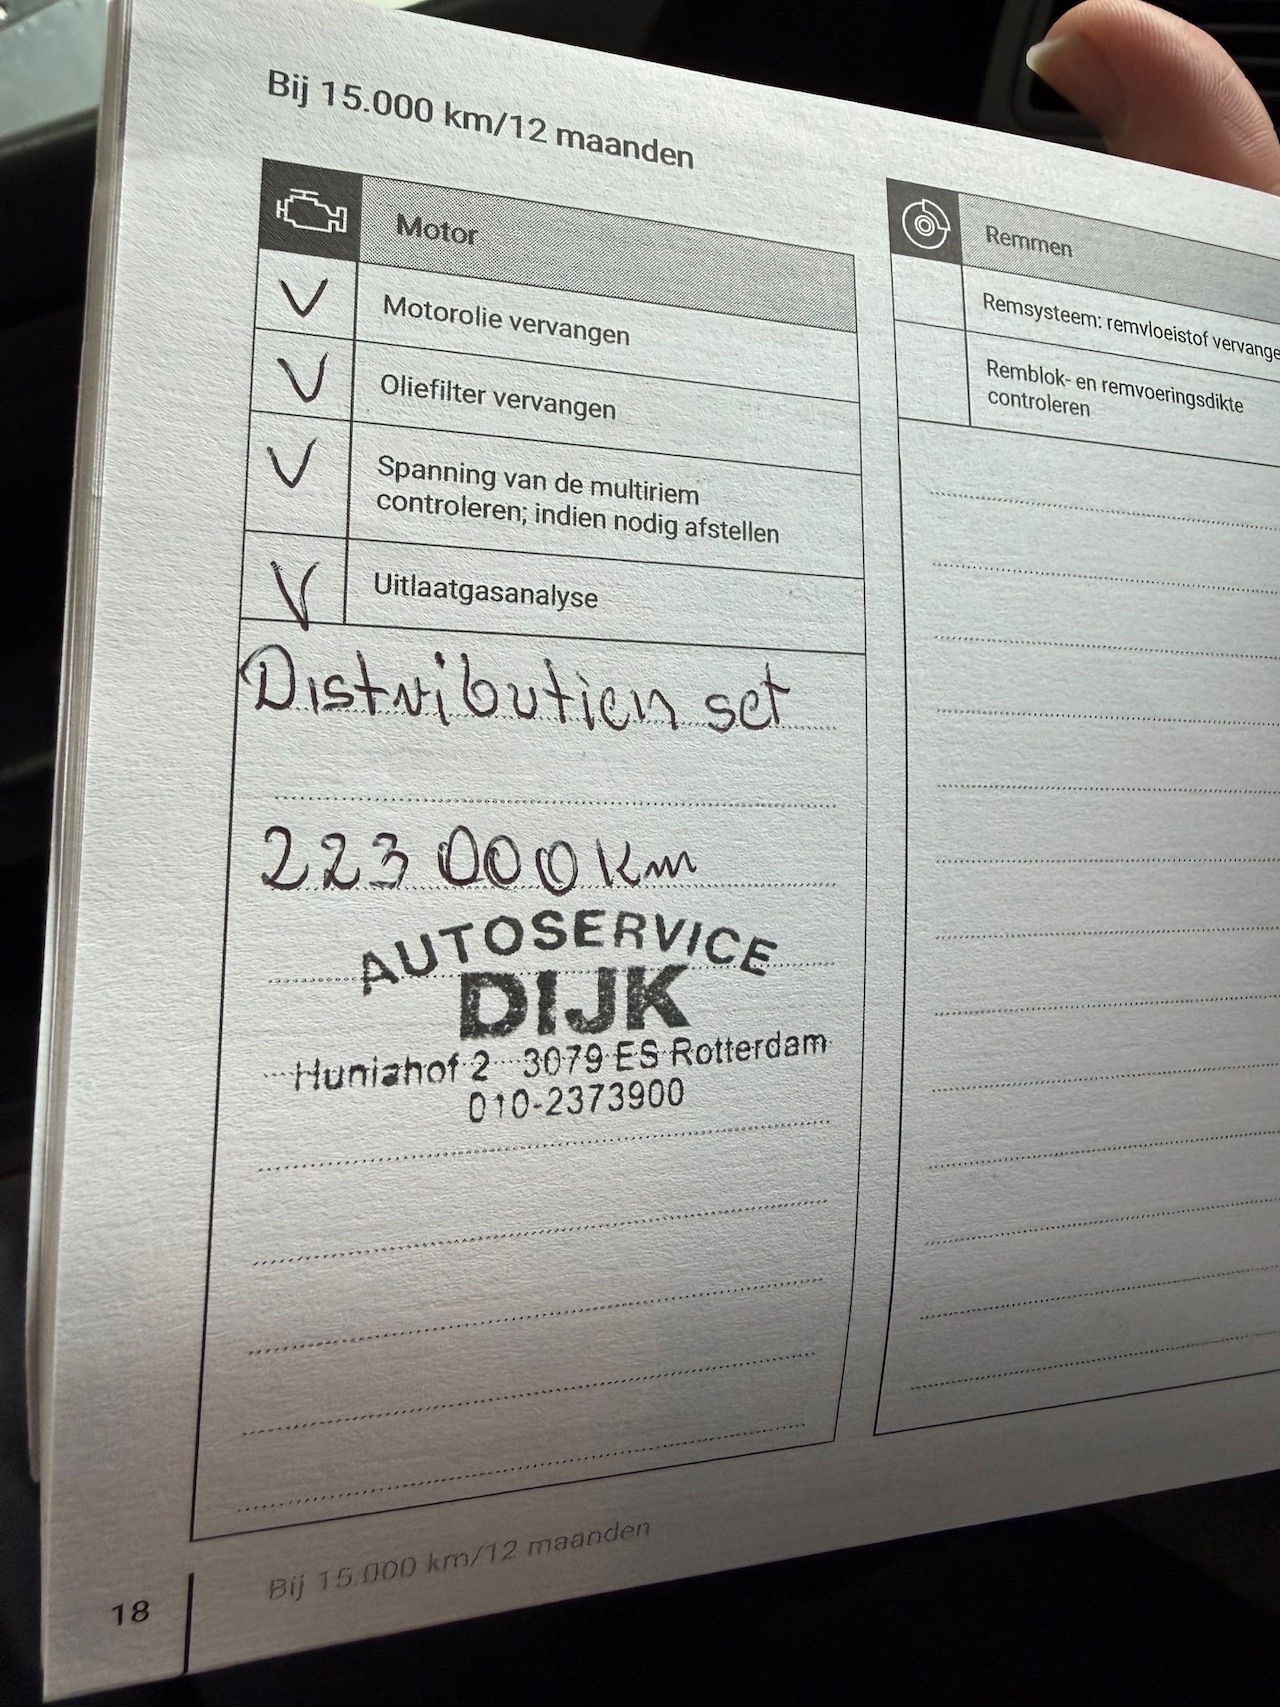 Bij 15.000 km/12 maanden
Motor
Motorolie vervangen
Oliefilter vervangen
Spanning van de multiriem
controleren; indien nodig afstellen
Uitlaatgasanalyse
Distribution set
223 000 Km
AUTOSERVICE
DIJK
Huniahof 2 3079 ES Rotterdam
010-2373900
Remmen
Remsysteem: remvloeistof vervange
Remblok- en remvoeringsdikte
controleren
Bij 15.000 km/12 maanden
18